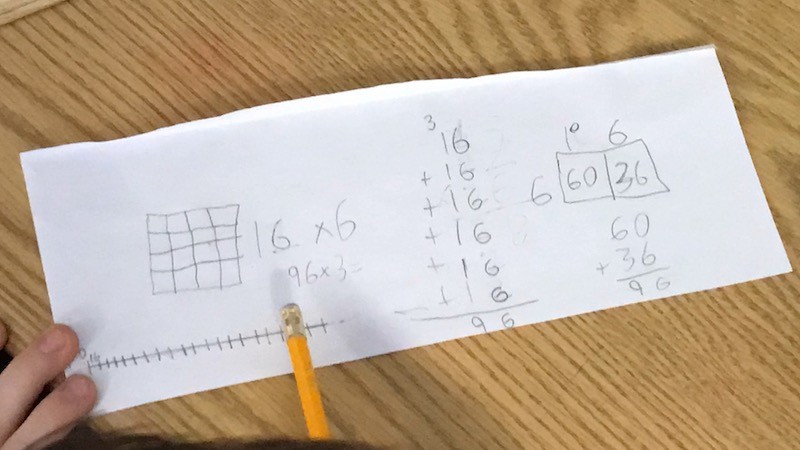 16 × 6
96×3=
3
16
+ 16
+ 16
+ 16
+ 16
+ 16
96
10 6
6 60 36
60
+ 36
96